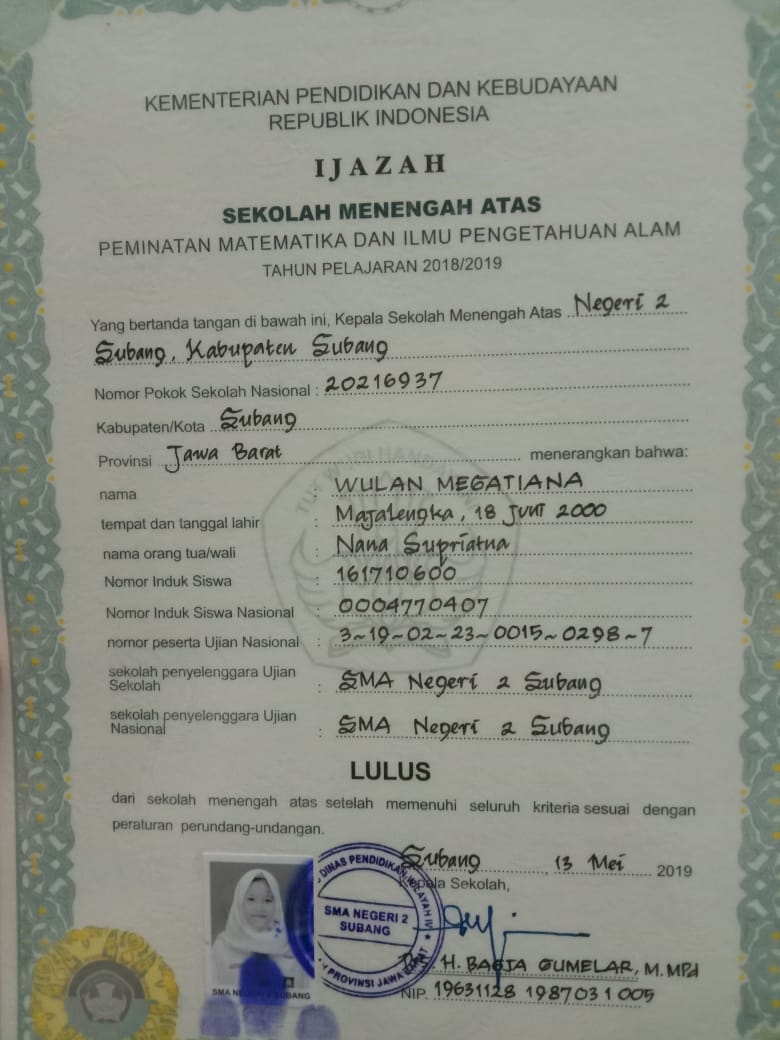 KEMENTERIAN PENDIDIKAN DAN KEBUDAYAAN
REPUBLIK INDONESIA
IJAZAH
SEKOLAH MENENGAH ATAS
PEMINATAN MATEMATIKA DAN ILMU PENGETAHUAN ALAM
TAHUN PELAJARAN 2018/2019
Yang bertanda tangan di bawah ini, Kepala Sekolah Menengah Atas Negeri 2
Subang, Kabupaten Subang
Nomor Pokok Sekolah Nasional : 20216937
Kabupaten/Kota Subang
Provinsi Jawa Barat menerangkan bahwa:
nama : WULAN MEGATIANA
tempat dan tanggal lahir : Majalengka, 18 Juni 2000
nama orang tua/wali : Nana Supriatna
Nomor Induk Siswa : 161710600
Nomor Induk Siswa Nasional : 0004770407
nomor peserta Ujian Nasional : 3~19~02~23~0015~0298~7
sekolah penyelenggara Ujian
Sekolah : SMA Negeri 2 Subang
sekolah penyelenggara Ujian
Nasional : SMA Negeri 2 Subang
LULUS
dari sekolah menengah atas setelah memenuhi seluruh kriteria sesuai dengan
peraturan perundang-undangan.
Subang, 13 Mei 2019
Kepala Sekolah,
DINAS PENDIDIKAN WILAYAH IV
SMA NEGERI 2
SUBANG
PROVINSI JAWA BARAT
H. BAGJA GUMELAR, M.MPd
NIP. 19631128 198703 1 005
SMA NEGERI 2 SUBANG
TUT WURI HANDAYANI